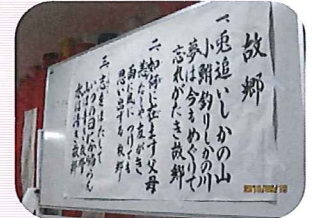 故郷
一、兎追いしかの山
小鮒釣りしかの川
夢は今もめぐりて
忘れがたき故郷
二、如何に在ます父母
恙なしや友がき
雨に風につけても
思い出ずる故郷
三、志をはたして
いつの日にか帰らん
山は青き故郷
水は清き故郷